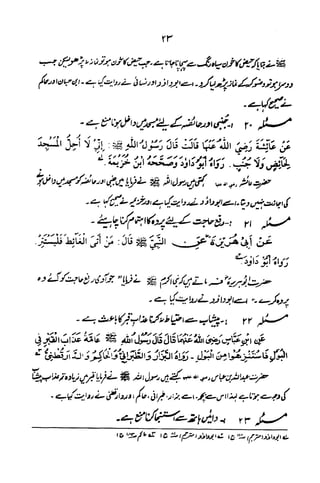 ۲۳
ﷺ نے بتایا کہ حیض کا خون سیاہ رنگ سے پہچانا جاتا ہے۔ جب حیض کا خون ہو تو نماز نہ پڑھو لیکن جب
دوسرا ہو تو وضو کر کے نماز پڑھ لیا کرو۔ اسے ابوداؤد اور نسائی نے روایت کیا ہے۔ ابن حبان اور حاکم
نے صحیح کہا ہے۔
مسئلہ ۲۰ :۔ جنبی اور حائضہ کے لیے مسجد میں داخل ہونا منع ہے۔
عَنْ عَائِشَةَ رَضِيَ اللهُ عَنْهَا قَالَتْ قَالَ رَسُوْلُ اللهِ ﷺ : اِنِّيْ لَا أُحِلُّ الْمَسْجِدَ
لِحَائِضٍ وَلَا جُنُبٍ. رَوَاهُ أَبُوْ دَاوُدَ وَصَحَّحَهُ ابْنُ خُزَيْمَةَ
حضرت عائشہ کہتی ہیں رسول اللہ ﷺ نے فرمایا میں جنبی اور حائضہ کو مسجد میں داخل ہونے
کی اجازت نہیں دیتا۔ اسے ابوداؤد نے روایت کیا ہے اور ابن خزیمہ نے صحیح کہا ہے۔
مسئلہ ۲۱ :۔ رفع حاجت کے لیے پردہ کا اہتمام کرنا چاہیے۔
عَنْ أَبِيْ هُرَيْرَةَ عَنِ النَّبِيِّ ﷺ قَالَ : مَنْ أَتَى الْغَائِطَ فَلْيَسْتَتِرْ.
رَوَاهُ أَبُوْ دَاوُدَ
حضرت ابوہریرہ کہتے ہیں نبی اکرم ﷺ نے فرمایا جو آدمی رفع حاجت کو آئے وہ
پردہ کرے۔ اسے ابوداؤد نے روایت کیا ہے۔
مسئلہ ۲۲ :۔ پیشاب سے احتیاط نہ کرنا عذاب قبر کا باعث ہے۔
عَنِ ابْنِ عَبَّاسٍ رَضِيَ اللهُ عَنْهُمَا قَالَ قَالَ رَسُوْلُ اللهِ ﷺ عَامَّةُ عَذَابِ الْقَبْرِ فِي
الْبَوْلِ فَاسْتَنْزِهُوْا مِنَ الْبَوْلِ. رَوَاهُ الْبَزَّارُ وَالطَّبَرَانِيُّ وَالْحَاكِمُ وَالدَّارَقُطْنِيُّ
حضرت عبداللہ بن عباس کہتے ہیں رسول اللہ ﷺ نے فرمایا قبر میں زیادہ تر عذاب پیشاب
کی وجہ سے ہوتا ہے لہذا اس سے بچو۔ اسے بزار، طبرانی، حاکم اور دارقطنی نے روایت کیا ہے۔
مسئلہ ۲۳ :۔ دائیں ہاتھ سے استنجا کرنا منع ہے۔